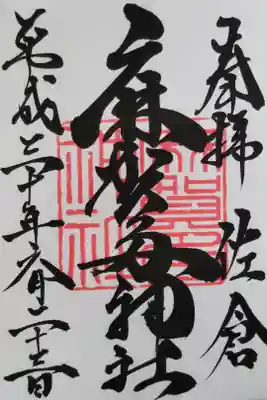 奉拝 佐倉
麻賀多神社
平成 十年 月二十 日